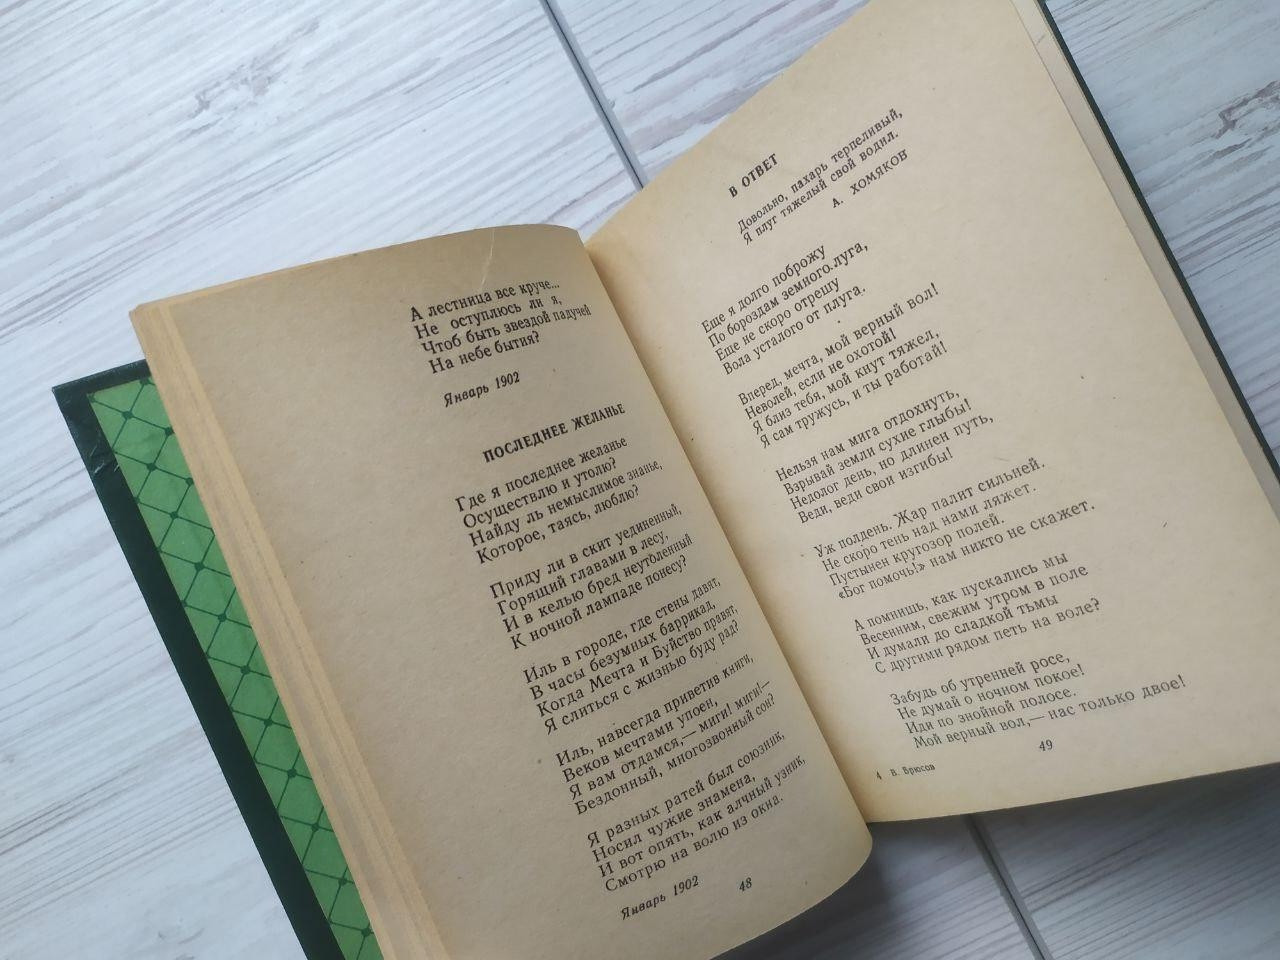 А лестница все круче...
Не оступлюсь ли я,
Чтоб быть звездой падучей
На небе бытия?
Январь 1902
ПОСЛЕДНЕЕ ЖЕЛАНЬЕ
Где я последнее желанье
Осуществлю и утолю?
Найду ль немыслимое знанье,
Которое, таясь, люблю?
Приду ли в скит уединенный,
Горящий главами в лесу,
И в келью бред неутоленный
К ночной лампаде понесу?
Иль в городе, где стены давят,
В часы безумных баррикад,
Когда Мечта и Буйство правят,
Я слиться с жизнью буду рад?
Иль, навсегда приветив книги,
Веков мечтами упоен,
Я вам отдамся,— миги! миги!—
Бездонный, многозвонный сон?
Я разных ратей был союзник,
Носил чужие знамена,
И вот опять, как алчный узник,
Смотрю на волю из окна.
Январь 1902
48
В ОТВЕТ
Довольно, пахарь терпеливый,
Я плуг тяжелый свой водил.
А. ХОМЯКОВ
Еще я долго поброжу
По бороздам земного луга,
Еще не скоро отрешу
Вола усталого от плуга.
Вперед, мечта, мой верный вол!
Неволей, если не охотой!
Я близ тебя, мой кнут тяжел,
Я сам тружусь, и ты работай!
Нельзя нам мига отдохнуть,
Взрывай земли сухие глыбы!
Недолог день, но длинен путь,
Веди, веди свои изгибы!
Уж полдень. Жар палит сильней.
Не скоро тень над нами ляжет.
Пустынен кругозор полей.
«Бог помочь!» нам никто не скажет.
А помнишь, как пускались мы
Весенним, свежим утром в поле
И думали до сладкой тьмы
С другими рядом петь на воле?
Забудь об утренней росе,
Не думай о ночном покое!
Иди по знойной полосе.
Мой верный вол,— нас только двое!
4 В. Брюсов
49